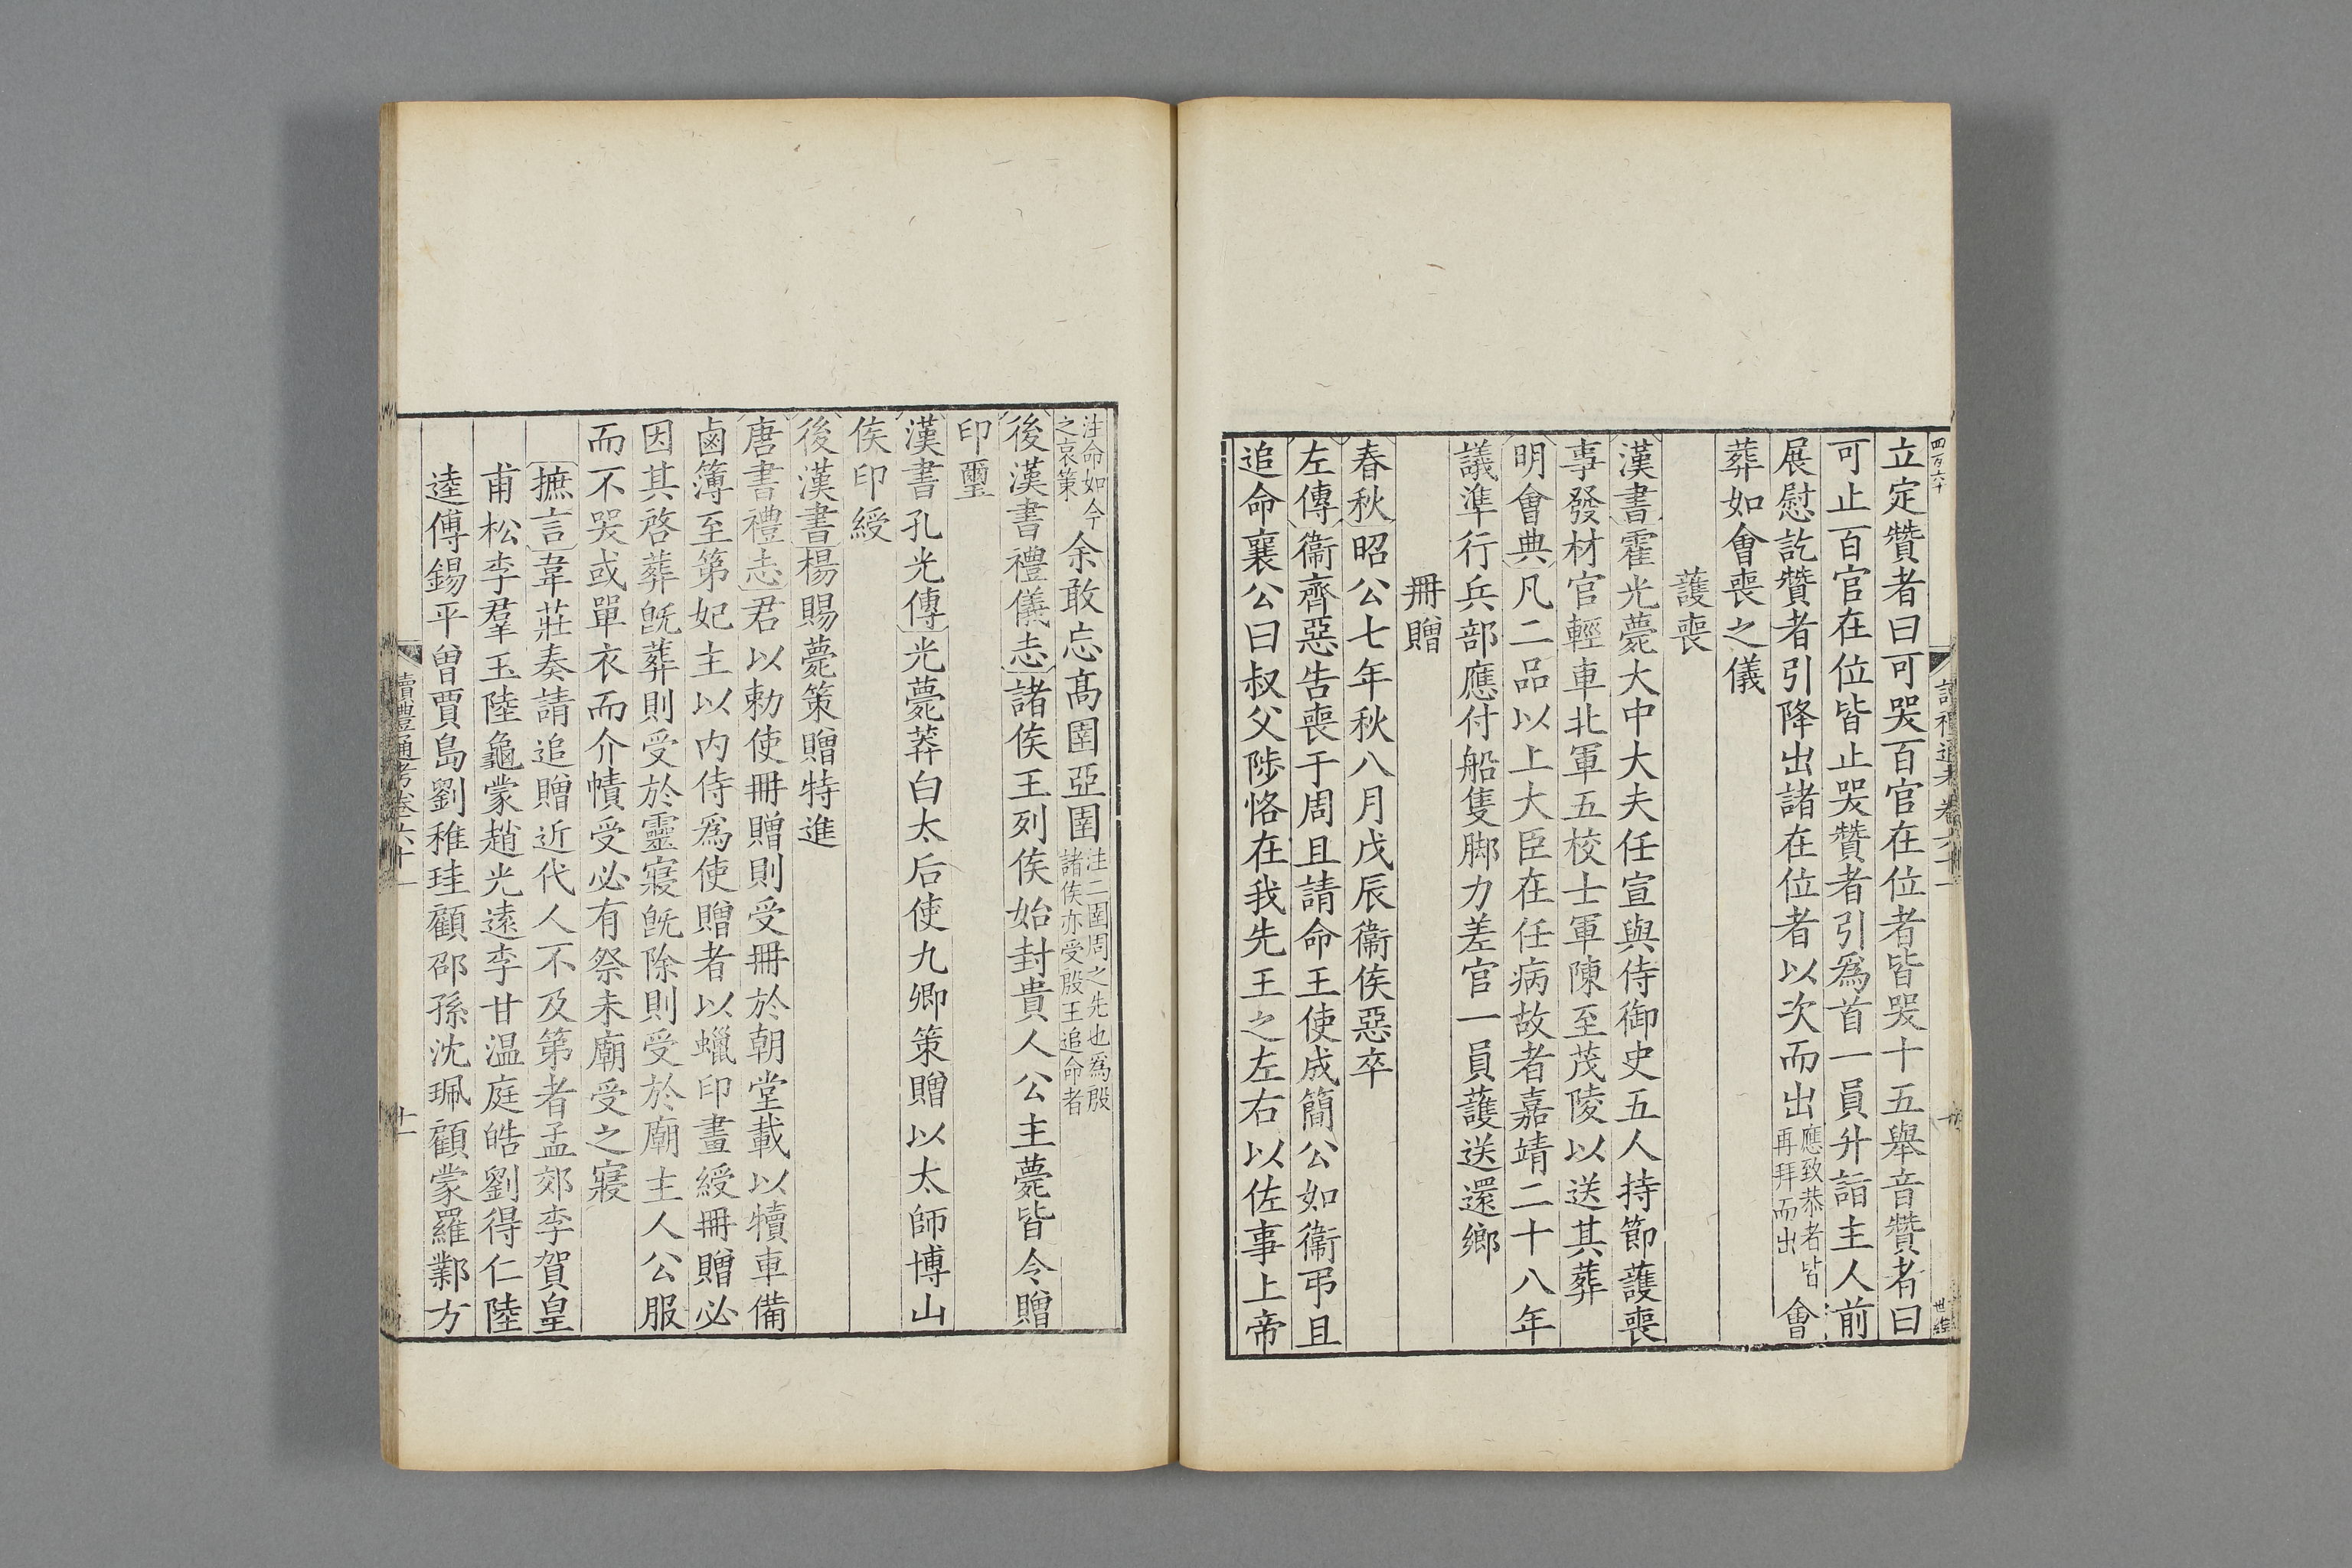 四百六十
讀禮通考卷六十一
立定贊者曰可哭百官在位者皆哭十五舉音贊者曰
可止百官在位皆止哭贊者引爲首一員升詣主人前
展慰訖贊者引降出諸在位者以次而出應致恭者皆再拜而出會
葬如會喪之儀
護喪
漢書霍光薨大中大夫任宣與侍御史五人持節護喪
事發材官輕車北軍五校士軍陳至茂陵以送其葬
明會典凡二品以上大臣在任病故者嘉靖二十八年
議準行兵部應付船隻脚力差官一員護送還鄉
冊贈
春秋昭公七年秋八月戊辰衞侯惡卒
左傳衞齊惡告喪于周且請命王使成簡公如衞弔且
追命襄公曰叔父陟恪在我先王之左右以佐事上帝
注命如今之哀策余敢忘高圉亞圉注二圉周之先也爲殷諸侯亦受殷王追命者
後漢書禮儀志諸侯王列侯始封貴人公主薨皆令贈
印璽
漢書孔光傳光薨莽白太后使九卿策贈以太師博山
侯印綬
後漢書楊賜薨策贈特進
唐書禮志君以勅使冊贈則受冊於朝堂載以犢車備
鹵簿至第妃主以内侍爲使贈者以蠟印畫綬冊贈必
因其啓葬旣葬則受於靈寢旣除則受於廟主人公服
而不哭或單衣而介幘受必有祭未廟受之寢
摭言韋莊奏請追贈近代人不及第者孟郊李賀皇
甫松李羣玉陸龜蒙趙光遠李甘温庭皓劉得仁陸
逵傅錫平曾賈島劉稚珪顧邵孫沈珮顧蒙羅鄴方
讀禮通考卷六十一
十一